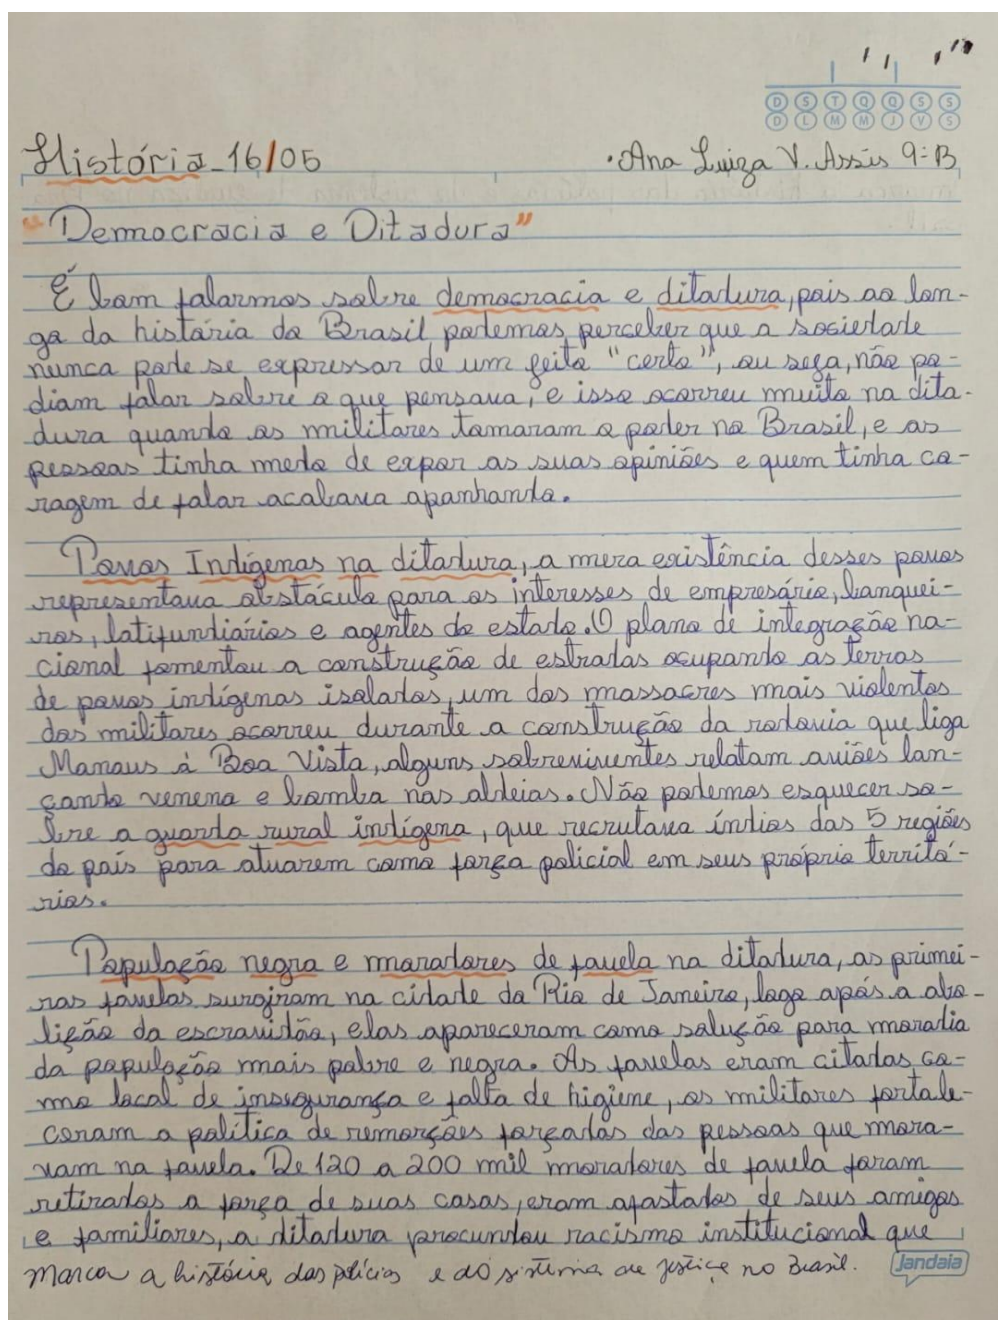 D S T Q Q S S
D L M M J V S
História - 16/05
• Ana Luiza V. Assis 9º B
"Democracia e Ditadura"
É bom falarmos sobre democracia e ditadura, pois ao lon-
go da história do Brasil podemos perceber que a sociedade
nunca pode se expressar de um jeito "certo", ou seja, não po-
diam falar sobre o que pensava, e isso ocorreu muito na dita-
dura quando os militares tomaram o poder no Brasil, e as
pessoas tinha medo de expor as suas opiniões e quem tinha co-
ragem de falar acabava apanhando.
Povos Indígenas na ditadura, a mera existência desses povos
representava obstáculo para os interesses de empresário, banquei-
ros, latifundiários e agentes do estado. O plano de integração na-
cional fomentou a construção de estradas ocupando as terras
de povos indígenas isolados, um dos massacres mais violentos
dos militares ocorreu durante a construção da rodovia que liga
Manaus à Boa Vista, alguns sobreviventes relatam aviões lan-
çando veneno e bomba nas aldeias. Não podemos esquecer so-
bre a guarda rural indígena, que recrutava índios das 5 regiões
do país para atuarem como força policial em seus próprio territó-
rios.
População negra e moradores de favela na ditadura, as primei-
ras favelas surgiram na cidade do Rio de Janeiro, logo após a abo-
lição da escravidão, elas apareceram como solução para moradia
da população mais pobre e negra. As favelas eram citadas co-
mo local de insegurança e falta de higiene, os militares fortale-
ceram a política de remorções forçadas das pessoas que mora-
vam na favela. De 120 a 200 mil moradores de favela foram
retirados a força de suas casas, eram afastados de seus amigos
e familiares, a ditadura racismo institucional que
marca a história das polícias e do sistema de justiça no Brasil.
Jandaia